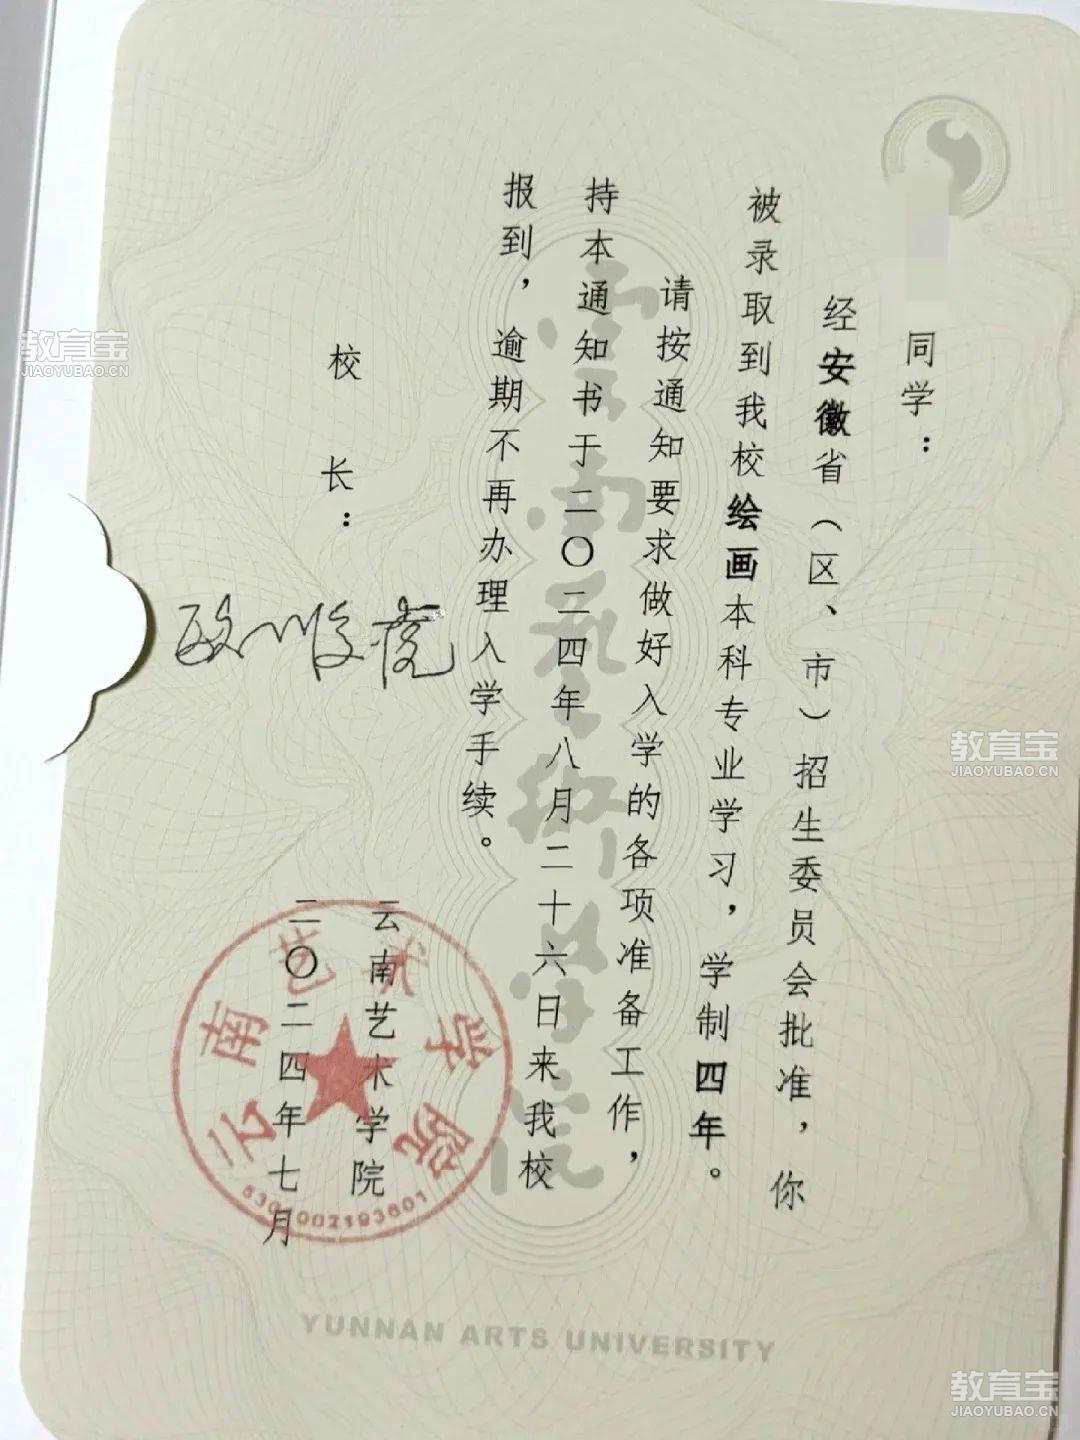 同学：
经安徽省（区、市）招生委员会批准，你
被录取到我校绘画本科专业学习，学制四年。
请按通知要求做好入学的各项准备工作，
持本通知书于二〇二四年八月二十六日来我校
报到，逾期不再办理入学手续。
校长：
云南艺术学院
二〇二四年七月
云南艺术学院
5301002193601
云南艺术学院
YUNNAN ARTS UNIVERSITY
教育宝
JIAOYUBAO.CN
教育宝
JIAOYUBAO.CN
教育宝
JIAOYUBAO.CN